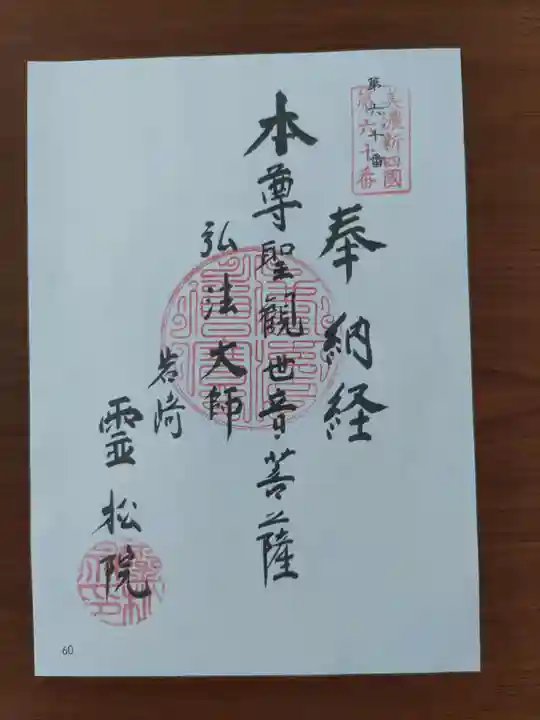 第六十番
美濃新四國
第六十番
奉納経
本尊聖觀世音菩薩
弘法大師
岩崎
霊松院
60